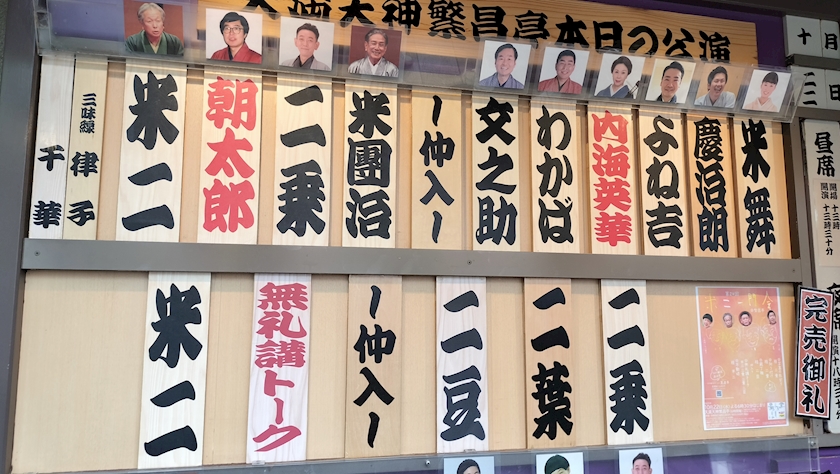 天満天神繁昌亭本日の公演
十月
二日
昼席
開場 十三時
開演 十三時三十分
米舞
慶治朗
よね吉
内海英華
わかば
文之助
ー仲入ー
米團治
二乗
朝太郎
米二
三味線
律子
千華
二乗
二葉
二豆
ー仲入ー
無礼講トーク
米二
完売御礼